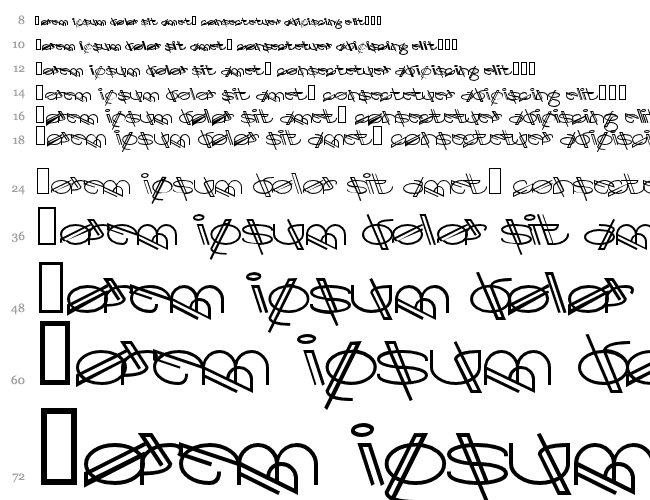 8 □orem ipsum dolor sit amet□ consectetuer adipiscing elit□□□
10 □orem ipsum dolor sit amet□ consectetuer adipiscing elit□□□
12 □orem ipsum dolor sit amet□ consectetuer adipiscing elit□□□
14 □orem ipsum dolor sit amet□ consectetuer adipiscing elit□□□
16 □orem ipsum dolor sit amet□ consectetuer adipiscing elit
18 □orem ipsum dolor sit amet□ consectetuer adipiscing
24 □orem ipsum dolor sit amet□ consectetu
36 □orem ipsum dolor sit am
48 □orem ipsum dolor
60 □orem ipsum do
72 □orem ipsum